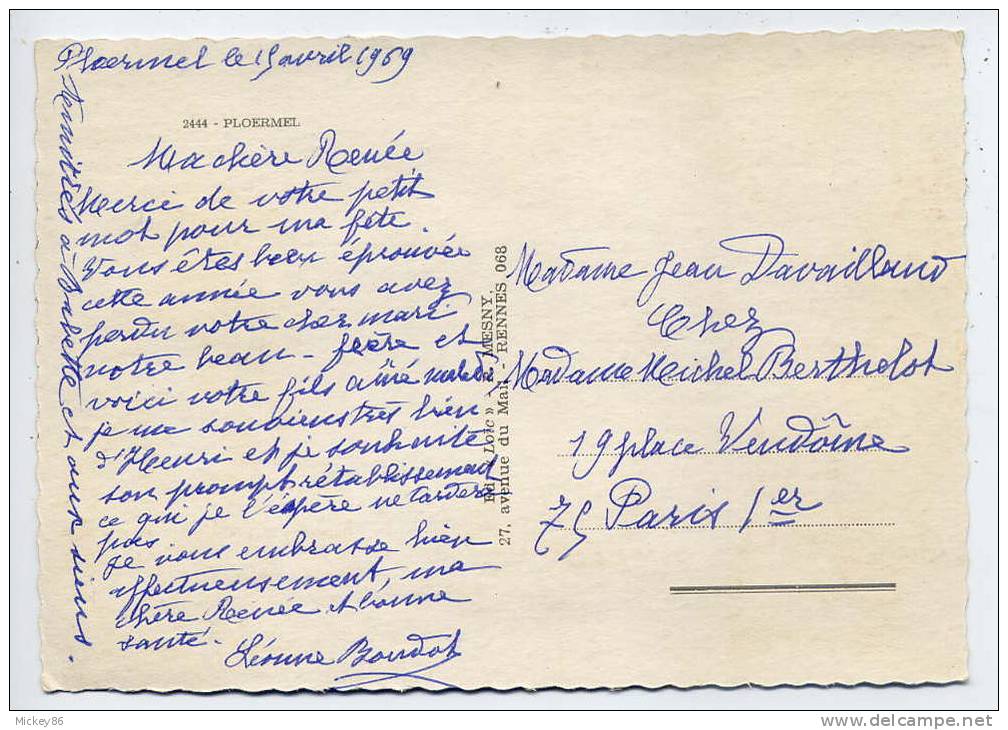 Ploermel le 15 avril 1969
2444 - PLOERMEL
Ma chère Renée
Merci de votre petit
mot pour ma fête.
Vous êtes bien éprouvée
cette année vous avez
perdu votre cher mari
notre beau-frère et
voici votre fils aîné malade
je me souviens très bien
d'Henri et je souhaite
son prompt rétablissement
ce qui je l'éspère ne tardera
pas
Je vous embrasse bien
affectueusement, ma
chère Renée et bonne
santé.
Léonne Boudot
Amitiés à Babette et aux siens.
Ed. « Loïc » - A. MESNY,
27, avenue du Mail RENNES 068
Madame Jean Davailland
Chez
Madame Michel Berthelot
19 place Vendôme
75 Paris 1er
Mickey86
www.delcampe.net